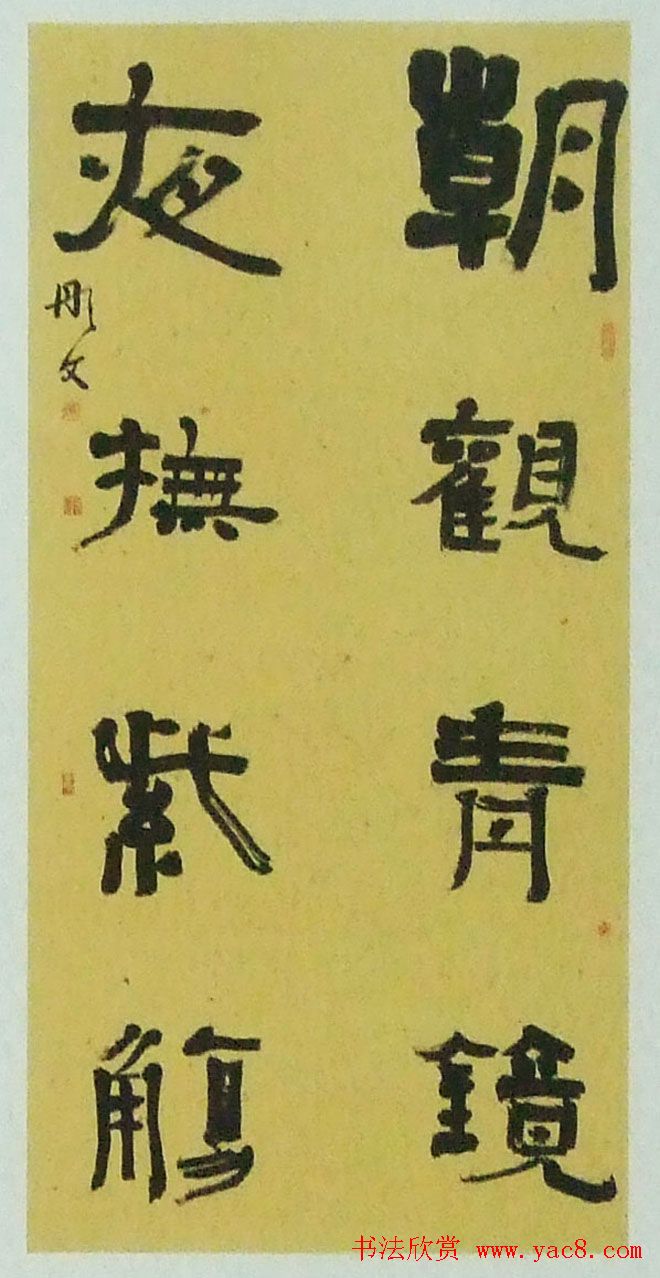 朝觀青鏡
夜撫紫觴
彤文
书法欣赏 www.yac8.com